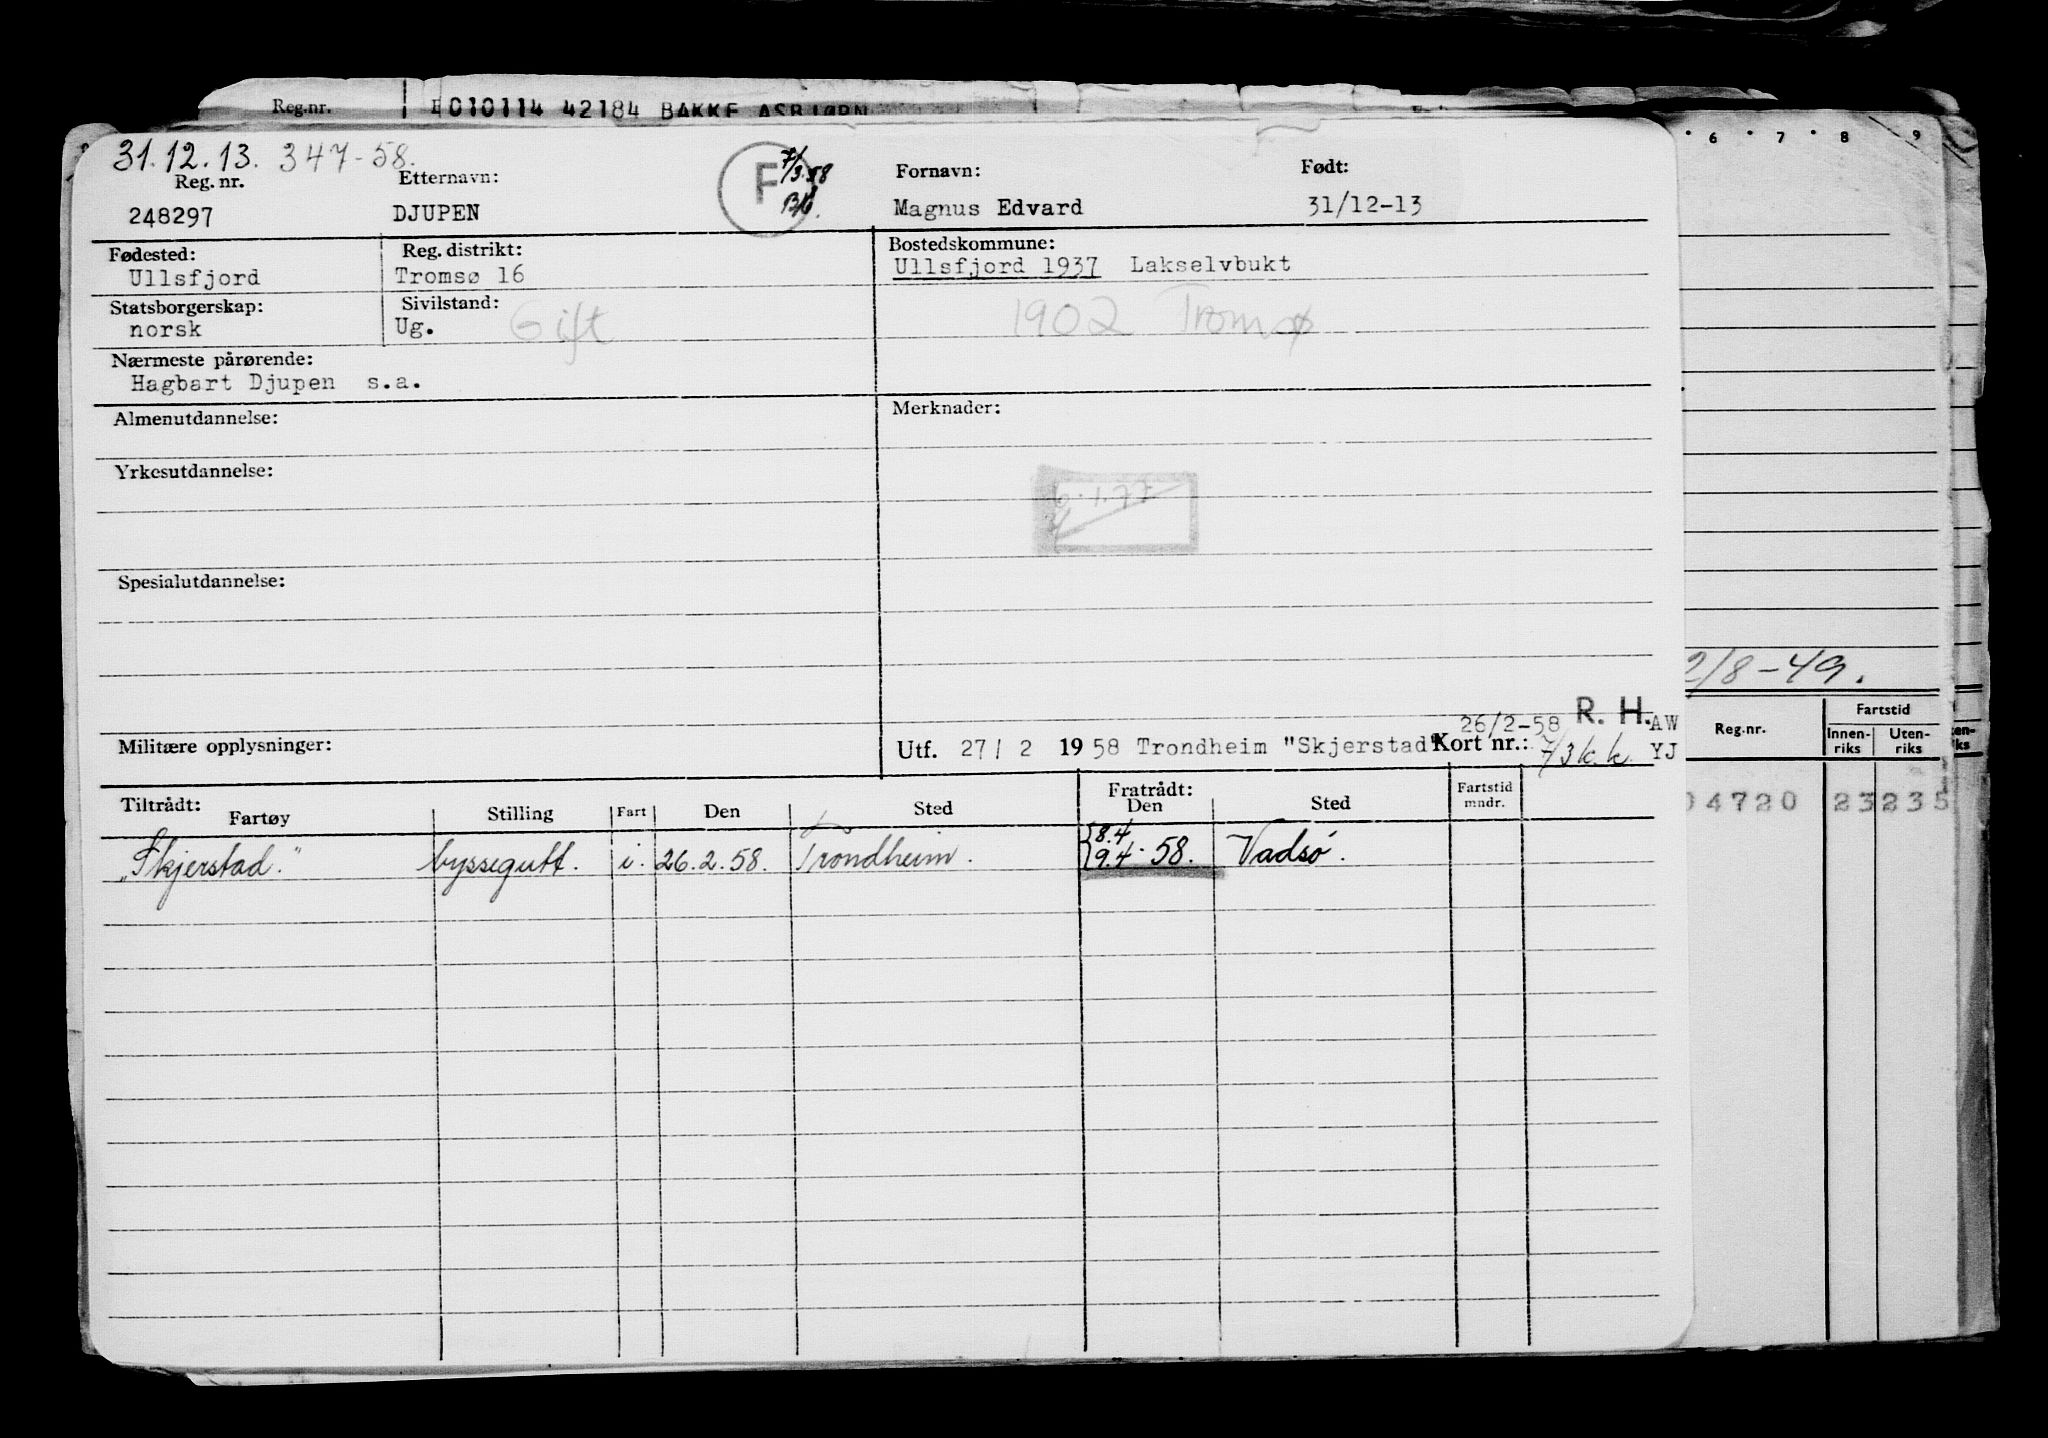 Reg.nr. 010114 42184 BAKKE ASBJØRN
6 7 8 9
31.12.13. 347-58.
Reg. nr. Etternavn: F 7/3.58 Fornavn: Født:
248297 DJUPEN Magnus Edvard 31/12-13
Fødested: Reg. distrikt: Bostedskommune:
Ullsfjord Tromsø 16 Ullsfjord 1937 Lakselvbukt
Statsborgerskap: Sivilstand:
norsk Ug. Gift 1902 Tromsø
Nærmeste pårørende:
Hagbart Djupen s.a.
Almenutdannelse: Merknader:
Yrkesutdannelse:
6.1.77
Spesialutdannelse:
2/8-49.
26/2-58 R. H. AW
Militære opplysninger: Utf. 27/ 2 1958 Trondheim "Skjerstad" Kort nr.: 7/3 k.k. YJ
Reg.nr. Fartstid
Innen- riks Uten- riks
Tiltrådt: Fratrådt: Fartstid
Fartøy Stilling Fart Den Sted Den Sted mndr.
04720 23235
"Skjerstad." byssegutt. i. 26.2.58. Trondheim. 8.4 9.4 .58. Vadsø.